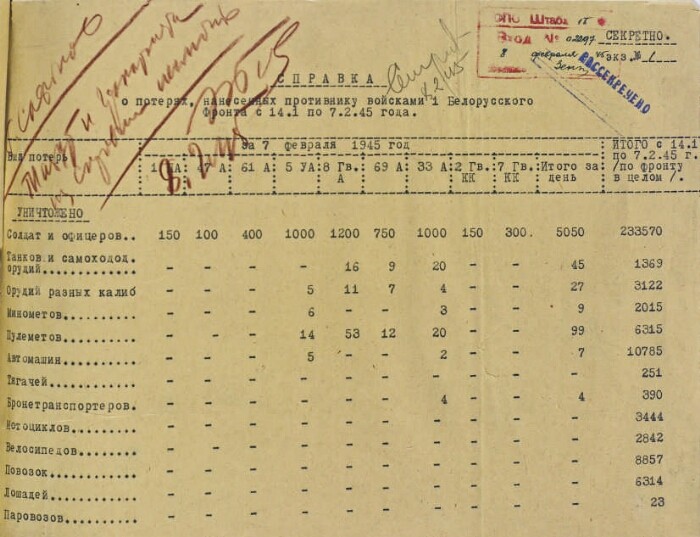 ОПО Штаба 1Б
Вход № 02297
8 февраля 45
СЕКРЕТНО.
экз.№ 1
РАССЕКРЕЧЕНО
8.2.45
СПРАВКА
о потерях, нанесенных противнику войсками 1 Белорусского
Фронта с 14.1 по 7.2.45 года.
Вид потерь за 7 февраля 1945 год ИТОГО с 14.1
по 7.2.45 г.
/по фронту
в целом /.
47 А 61 А 5 УА 8 Гв. А 69 А 33 А 2 Гв. КК 7 Гв. КК Итого за день
УНИЧТОЖЕНО
Солдат и офицеров.. 150 100 400 1000 1200 750 1000 150 300. 5050 233570
Танков и самоходод.
орудий............. - - - - 16 9 20 - - 45 1369
Орудий разных калиб - - - 5 11 7 4 - - 27 3122
Минометов.......... - - - 6 - - 3 - - 9 2015
Пулеметов.......... - - - 14 53 12 20 - - 99 6315
Автомашин.......... - - - 5 - - 2 - - 7 10785
Тягачей............ - - - - - - - - - - 251
Бронетранспортеров. - - - - - - 4 - - 4 390
Мотоциклов......... - - - - - - - - - - 3444
Велосипедов........ - - - - - - - - - - 2842
Повозок............ - - - - - - - - - - 8857
Лошадей............ - - - - - - - - - - 6314
Паровозов.......... - - - - - - - - - - 23